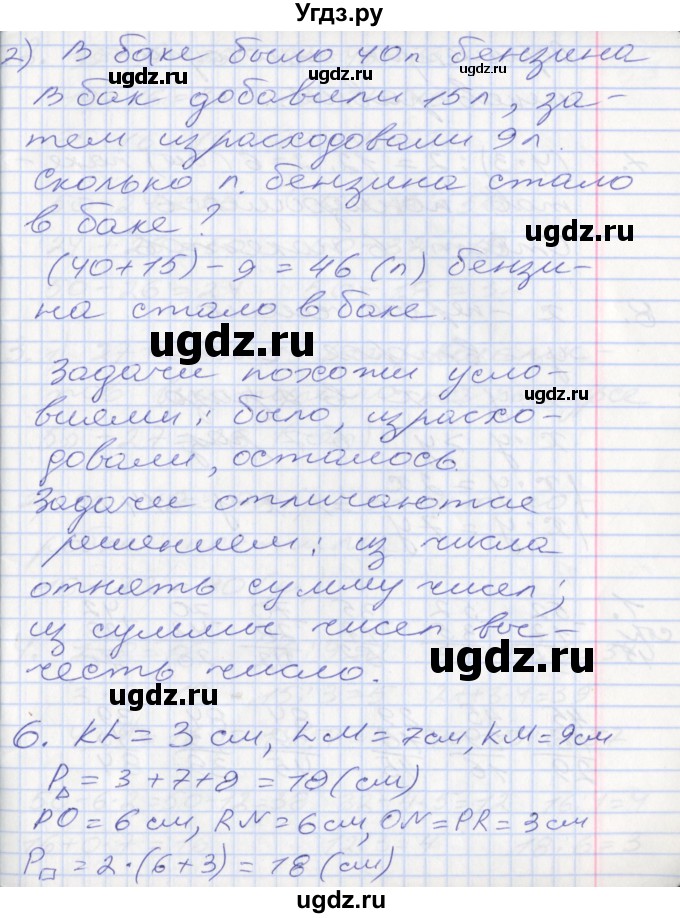 Угдз.ру
2) В баке было 40л бензина
В бак добавили 15л, за-
тем израсходовали 9л.
Сколько л. бензина стало
в баке?
(40+15)-9=46(л) бензи-
на стало в баке.
Задачи похожи усло-
виями: было, израсхо-
довали, осталось.
Задачи отличаются
решением: из числа
отнять сумму чисел;
из суммы чисел вы-
честь число.
6. KL = 3 см, LM = 7см, KM = 9см
P△ = 3+7+9 = 19 (см)
PO = 6 см, RN = 6 см, ON = PR = 3 см
P□ = 2·(6+3) = 18 (см)
ugdz.ru
ugdz.ru
ugdz.ru
ugdz.ru
ugdz.ru
ugdz.ru
ugdz.ru
ugdz.ru
ugdz.ru
ugdz.ru
ugdz.ru